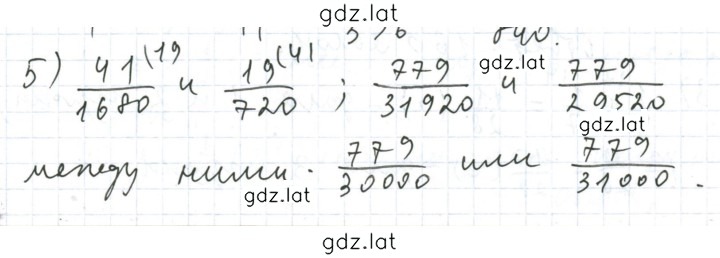 gdz.lat
5) 41(19/1680 и 19(41/720 ; 779/31920 и 779/29520
gdz.lat
gdz.lat
между ними. 779/30000 или 779/31000.
gdz.lat
gdz.lat
gdz.lat